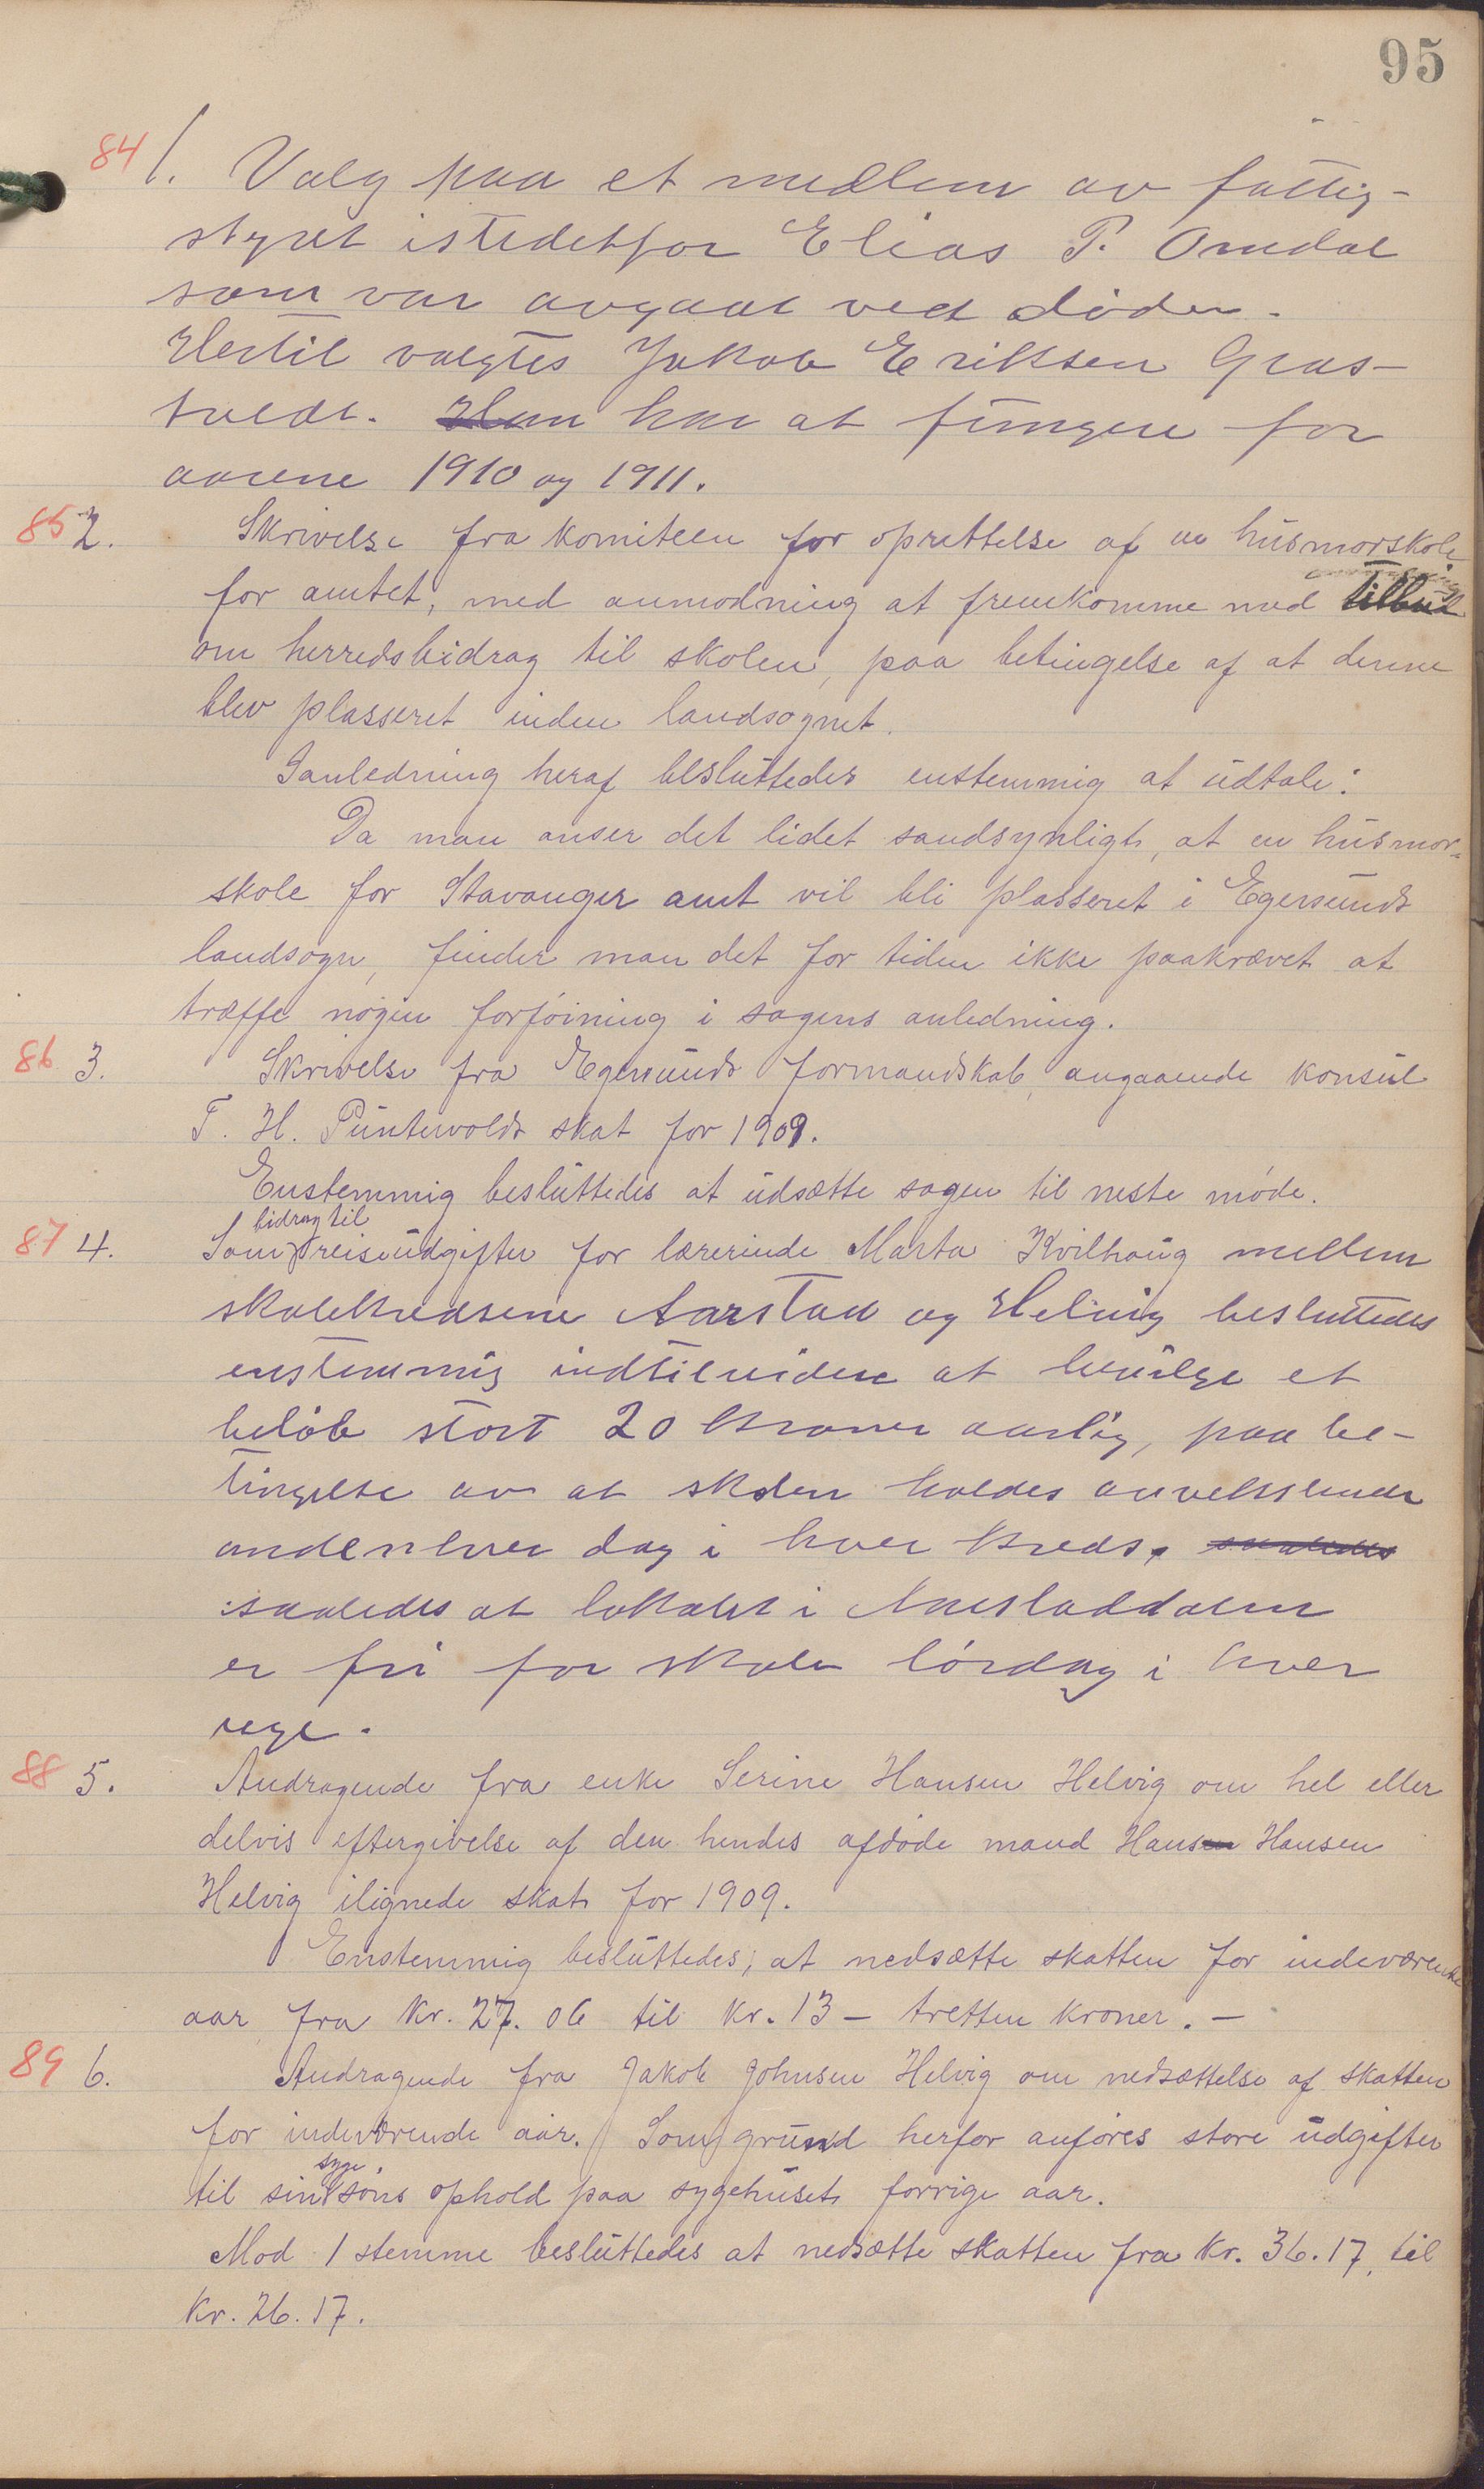 95
84 1. Valg paa et medlem av fattig-
styret istedetfor Elias P. Omdal
som var avgaat ved döden.
Hertil valgtes Jakob Eriksen Gras-
tvedt. Han har at fungere for
aarene 1910 og 1911.
85 2. Skrivelse fra komiteen for oprettelse af en husmorskole
for amtet, med anmodning at fremkomme med tilbud
om herredsbidrag til skolen, paa betingelse af at denne
blev plasseret inden landsognet.
I anledning heraf besluttedes enstemmig at udtale:
Da man anser det lidet sandsynligt, at en husmor-
skole for Stavanger amt vil bli plasseret i Egersunds
landsogn, finder man det for tiden ikke paakrævet at
træffe nogen forföining i sagens anledning.
86 3. Skrivelse fra Egersunds formandskab, angaaende konsul
T. H. Puntervolds skat for 1909.
Enstemmig besluttedes at udsætte sagen til neste möde.
87 4. Som bidrag til reiseudgifter for lærerinde Marta Kvilhaug mellem
skolekredsene Aarstad og Helvig besluttedes
enstemmig indtilvidere at bevilge et
belöb stort 20 kroner aarlig, paa be-
tingelse av at skolen holdes anvekslende
andenhver dag i hver kreds, saaledes
saaledes at lokalet i Aarstaddalen
er fri for skole lördag i hver
uge.
88 5. Andragende fra enke Serine Hansen Helvig om hel eller
delvis eftergivelse af den hendes afdöde mand Hansen Hansen
Helvig ilignede skat for 1909.
Enstemmig besluttedes, at nedsætte skatten for indeværende
aar fra kr. 27.06 til kr. 13 – tretten kroner. –
89 6. Andragende fra Jakob Johnsen Helvig om nedsættelse af skatten
for indeværende aar. Som grund herfor anföres store udgifter
til sin syge söns ophold paa sygehuset forrige aar.
Mod 1 stemme besluttedes at nedsætte skatten fra kr. 36.17, til
kr. 26.17.